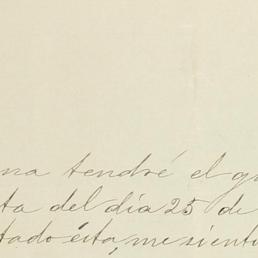 na tendré el gu
ta del día 25 de
tado ésta, me sient